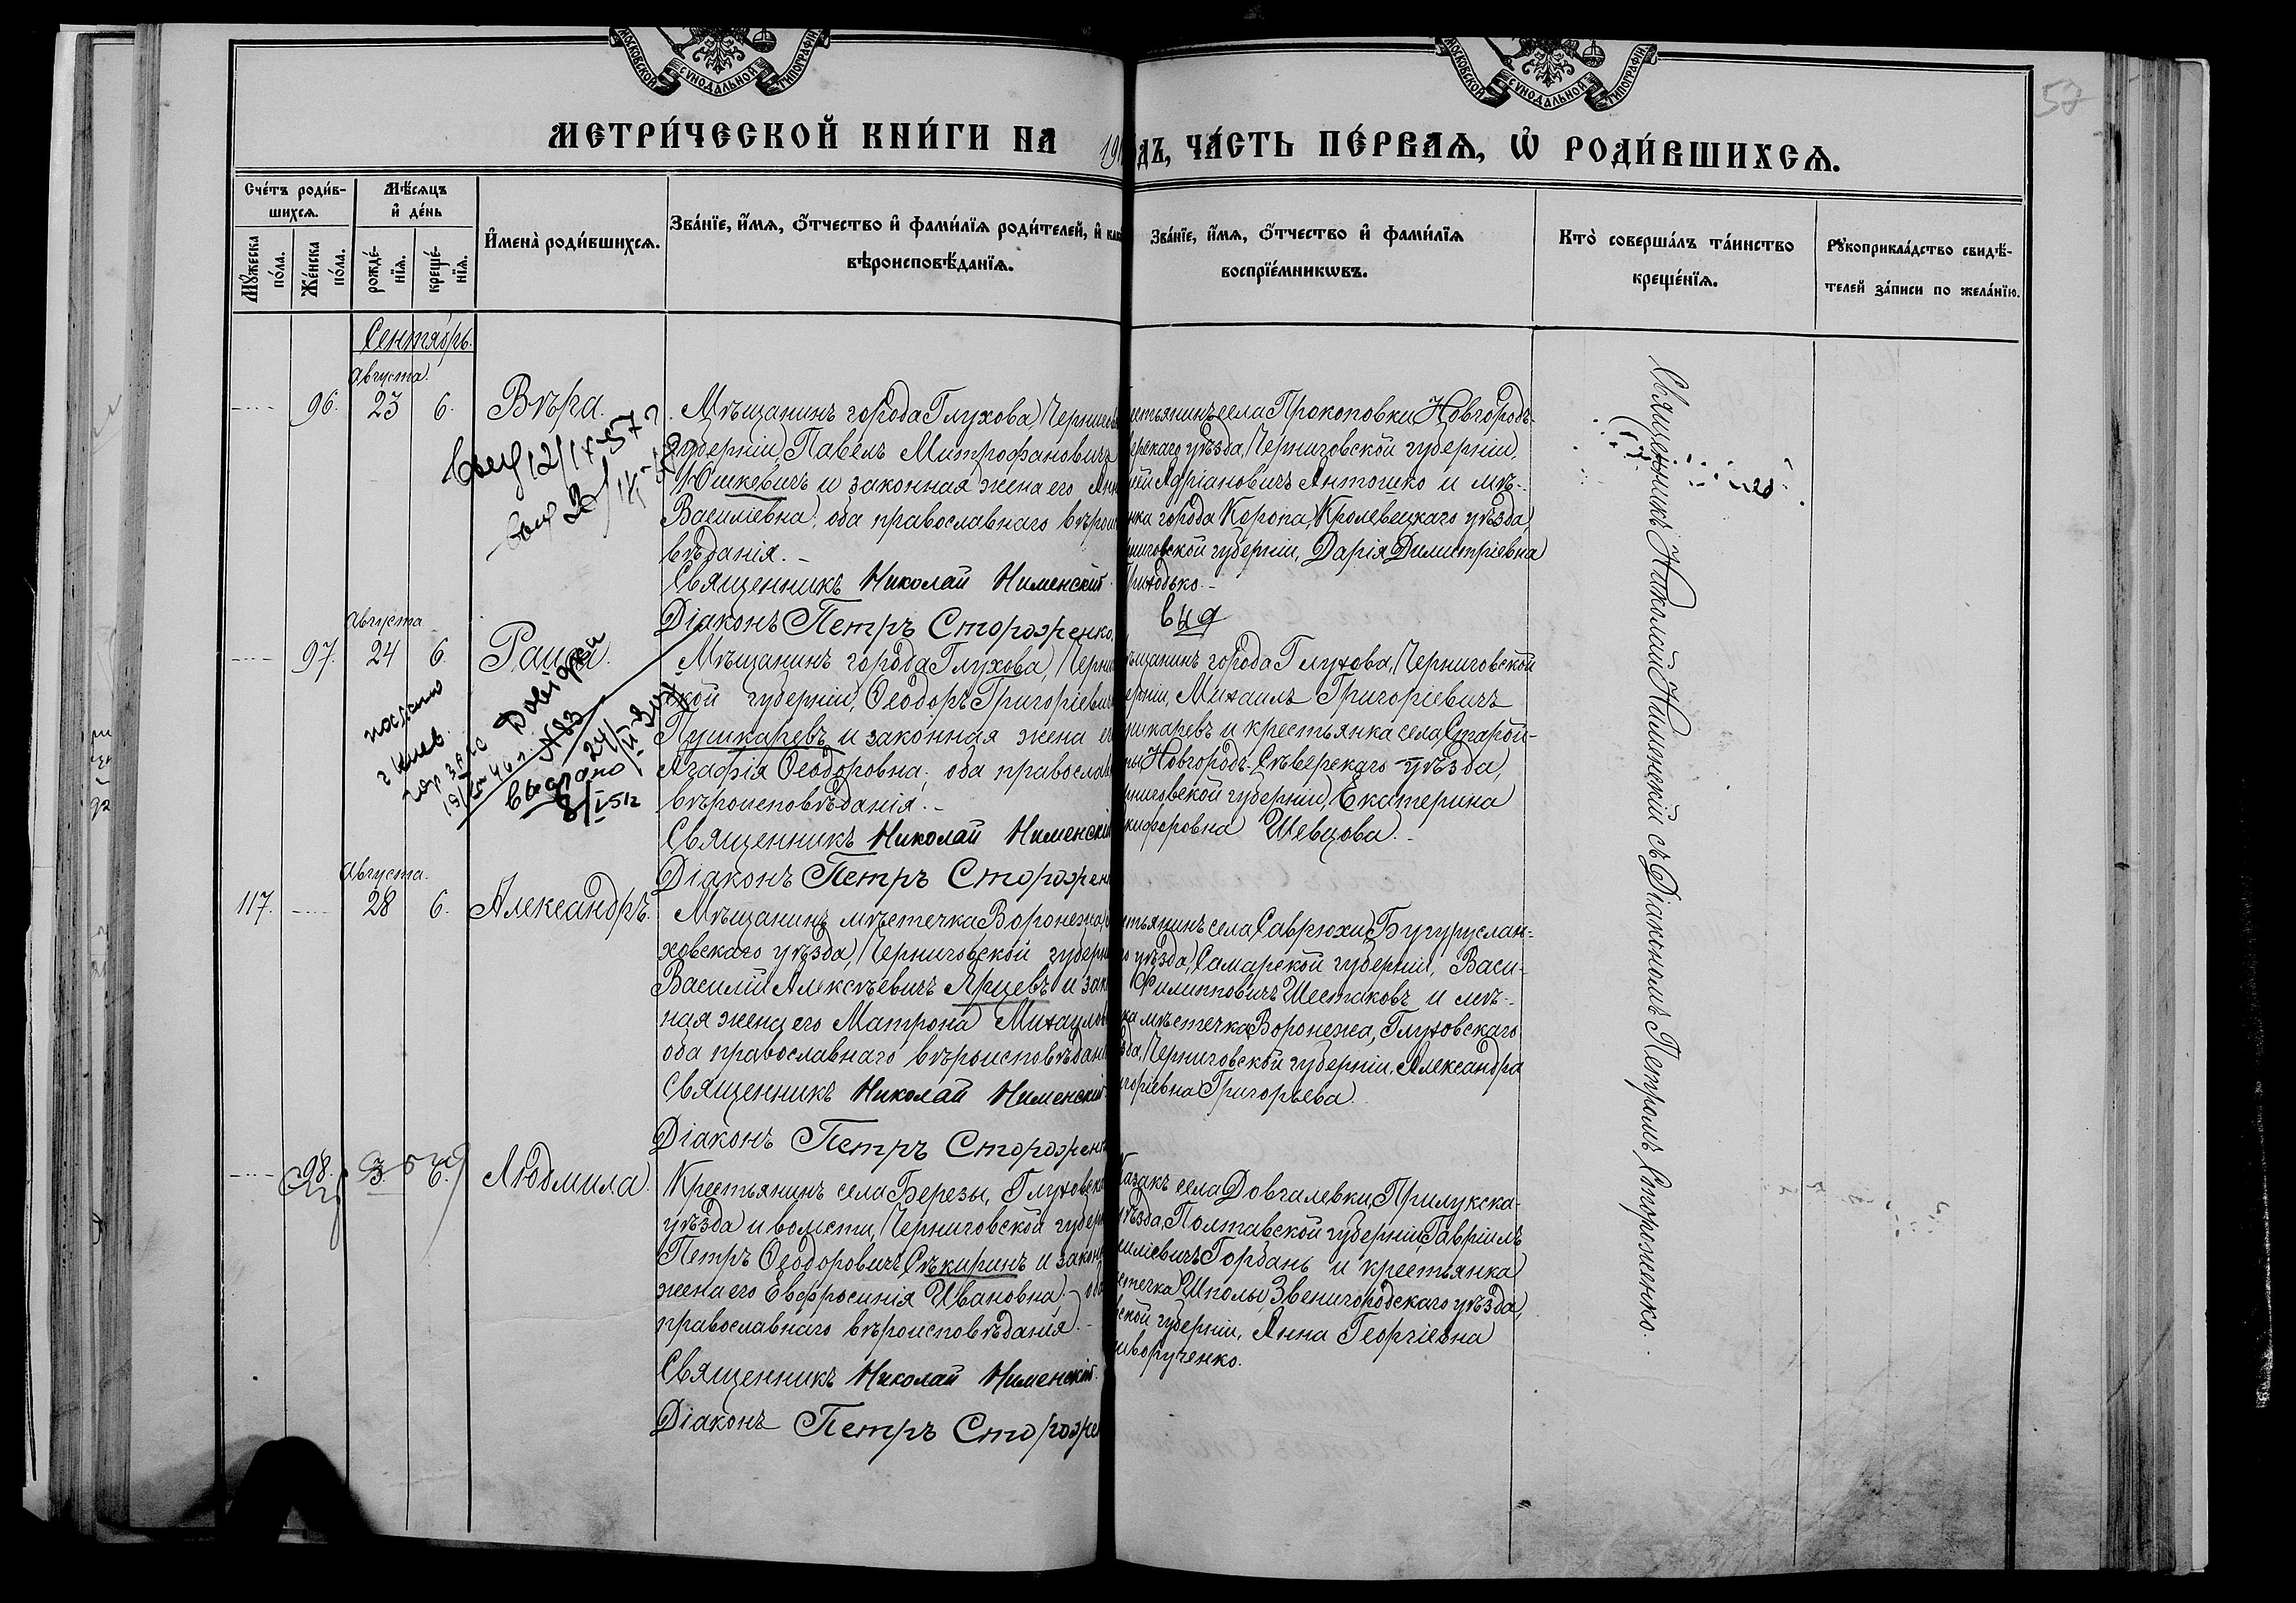 МОСКОВСКОЙ СѴНОДАЛЬНОЙ ТИПОГРАФІИ
МОСКОВСКОЙ СѴНОДАЛЬНОЙ ТИПОГРАФІИ
57
МЕТРИ́ЧЕСКОЙ КНИ́ГИ НА 191
дъ, ЧА́СТЬ ПЕ́РВАѦ, Ѡ РОДИ́ВШИХСѦ.
Сче́тъ роди́в-
шихсѧ.
Мѣ́сѧцъ
и҆ де́нь
Мꙋ́жеска по́ла.
Же́нска по́ла.
рожде́-нїѧ.
креще́-нїѧ.
И҆мена̀ роди́вшихсѧ.
Зва́нїе, и҆́мѧ, ѻ҆́тчество и҆ фами́лїѧ роди́телей, и҆ как
вѣроисповѣ́данїѧ.
Зва́нїе, и҆́мѧ, ѻ҆́тчество и҆ фами́лїѧ
воспрїе́мникѡвъ.
Кто̀ соверша́лъ та́инство
креще́нїѧ.
Рꙋкоприкла́дство свидѣ́-
телей за́писи по жела́нїю.
Сентябрь.
Августа.
96. 23 6. Вѣра.
Мѣщанинъ города Глухова, Чернигов
губерніи, Павелъ Митрофановичъ
Юшкевичъ и законная жена его Анн
Василіевна, оба православнаго вѣроис
вѣданія.
Священникъ Николай Нименскій.
Діаконъ Петръ Стороженко.
естьянинъ села Прокоповки, Новгородъ-
верскаго уѣзда, Черниговской губерніи,
ій Адріановичъ Антошко и мѣ-
нка города Коропа, Кролевецкаго уѣзда,
ниговской губерніи, Дарія Димитріевна
Приходько.
вид
Августа
97. 24 6. Раиса.
Мѣщанинъ города Глухова, Черни
ской губерніи, Ѳеодоръ Григоріевич
Пушкаревъ и законная жена ег
Агафія Ѳеодоровна; оба православ
вѣроисповѣданія.
Священникъ Николай Нименскій
Діаконъ Петръ Сторожен
ѣщанинъ города Глухова, Черниговской
ерніи, Михаилъ Григоріевичъ
ушкаревъ и крестьянка села Старой-
ны Новгородъ-Сѣверскаго уѣзда,
рниговской губерніи, Екатерина
кифоровна Шевцова.
Августа.
117. 28 6. Александръ.
Мѣщанинъ мѣстечка Воронежа,
ховскаго уѣзда, Черниговской губерн
Василій Алексѣевичъ Ярцевъ и зак
ная жена его Матрона Михайлов
оба православнаго вѣроисповѣдан
Священникъ Николай Нименскій
Діаконъ Петръ Стороженк
стьянинъ села Саврюхи, Бугуруслан-
о уѣзда, Самарской губерніи, Васи-
Филипповичъ Шестаковъ и мѣ-
ка мѣстечка Воронежа, Глуховскаго
зда, Черниговской губерніи, Александра
игоріевна Григорьева.
98. 3. 6. Людмила
Крестьянинъ села Березы, Глуховск
уѣзда и волости, Черниговской губерн
Петръ Ѳеодоровичъ Сѣкиринъ и закон
жена его Евфросинія Ивановна; оба
православнаго вѣроисповѣданія.
Священникъ Николай Нименскій.
Діаконъ Петръ Стороже
Казакъ села Довгалевки, Прилукска-
уѣзда, Полтавской губерніи, Гавріилъ
силіевичъ Горбань и крестьянка
стечка Шполы, Звенигородскаго уѣзда,
ской губерніи, Анна Георгіевна
иворученко.
Священникъ Николай Нименскій съ Діакономъ Петромъ Стороженко.